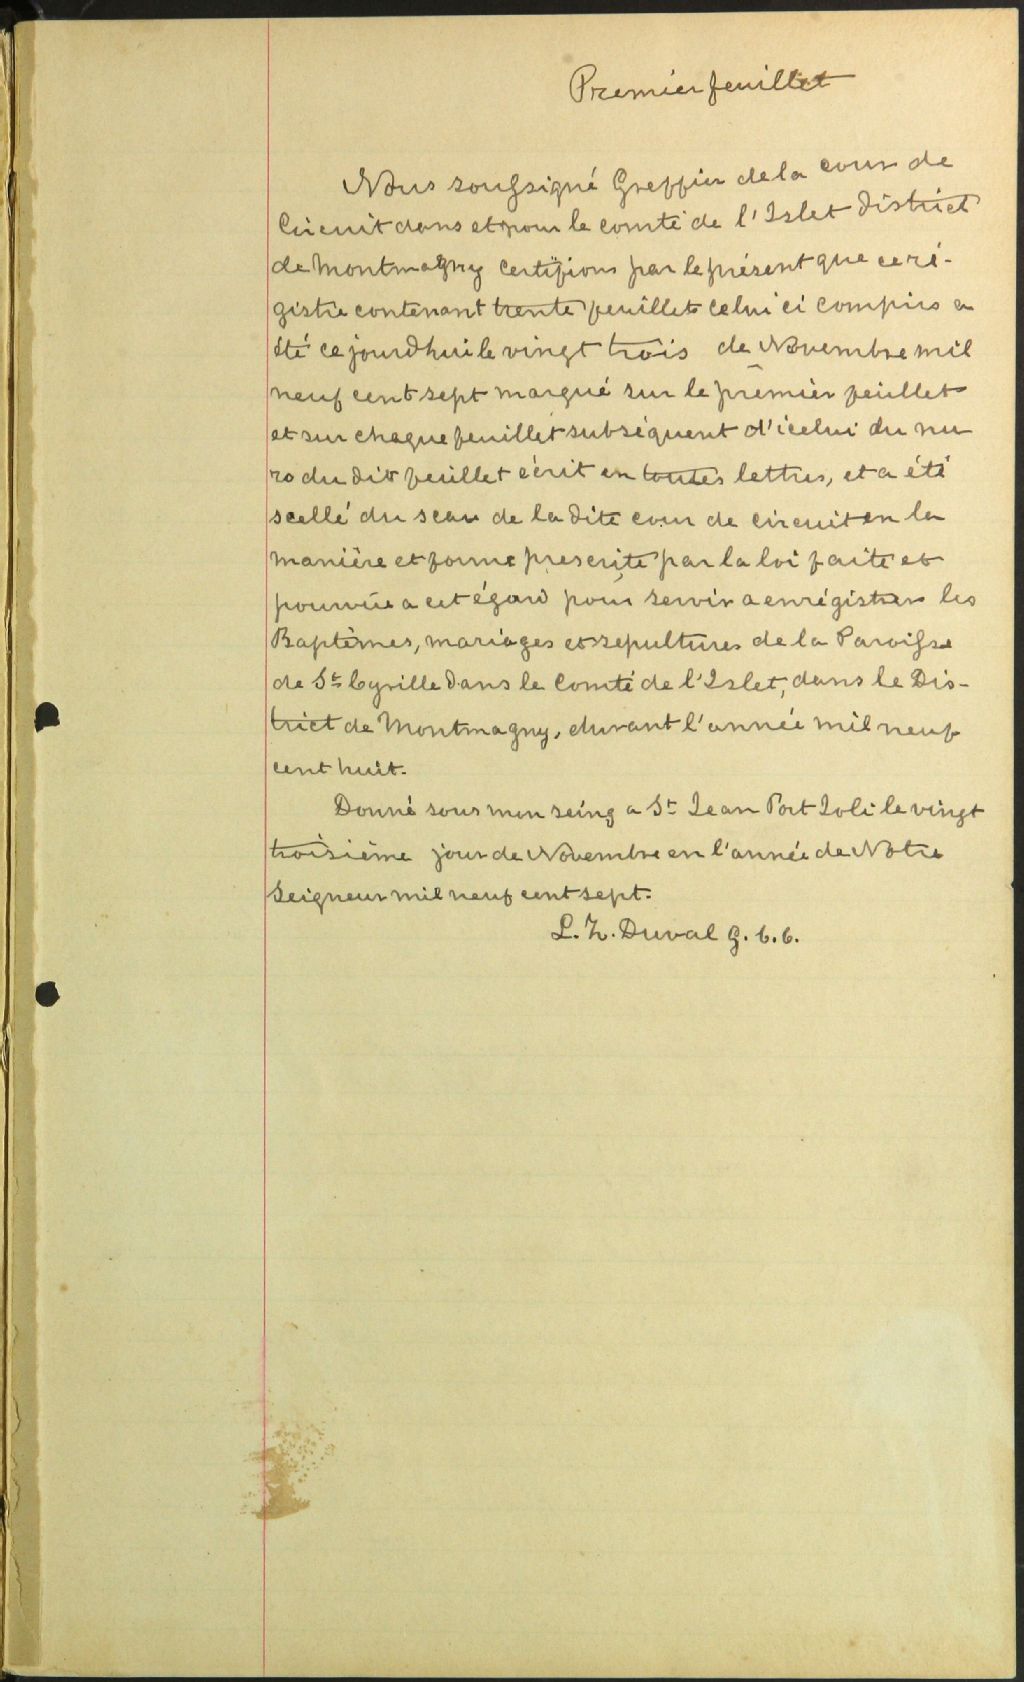 Premier feuillet
Nous soussigné Greffier de la cour de
Circuit dans et pour le comté de l'Islet District
de Montmagny certifions par le présent que ce ré-
gistre contenant trente feuillets celui ci compris a
été ce jourdhui le vingt trois de Novembre mil
neuf cent sept marqué sur le prémier feuillet
et sur chaque feuillet subséquent d'icelui du nu
ro du dit feuillet écrit en toutes lettres, et a été
scellé du sceau de la dite cour de circuit en la
manière et forme prescrite par la loi faite et
pourvue a cet égard pour servir a enrégistrer les
Baptêmes, mariages et sepultures de la Paroisse
de St Cyrille dans le Comté de l'Islet, dans le Dis-
trict de Montmagny, durant l'année mil neuf
cent huit.
Donné sous mon seing a St Jean Port Joli le vingt
troisième jour de Novembre en l'année de Notre
Seigneur mil neuf cent sept.
L. Z. Duval G. C. C.